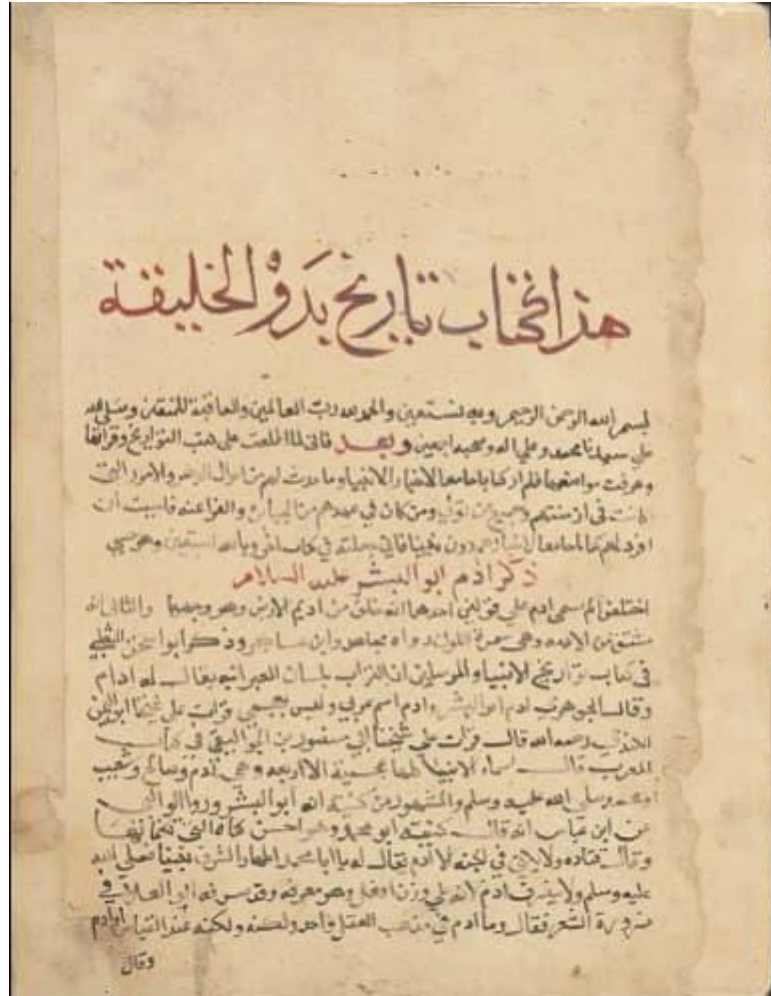 هذا كتاب تاريخ بَدوْ الخليقة
بسم الله الرحمن الرحيم وبه نستعين والحمد لله رب العالمين والعاقبة للمتقين وصلى الله
على سيدنا محمد وعلى اله وصحبه اجمعين وبعد فاني لما اطلعت على هتب التواريخ وقرائتها
وعرفت مواضعها فلم ار كتابا جامعا لاخبار الانبيا وما حدث لهم من احوال والامور التي
كانت في ازمنتهم ومن كان في عهدهم من الجبابرة والفراعنه فاحببت ان
افرد لهم كتابا جامعا لاخبارهم دون نبينا فاني جعلته في كتاب اخر وبالله استعين وهو حسبي
ذكر ادم ابو البشر عليه السلام
اختلفوا لم سمى ادم على قولين احدهما انه خلق من اديم الارض وهو وجهها والثاني انه
مشتق من الادمه وهي سمرة اللون رواه مجاهد وابن وذكر ابو اسحق الثعلبي
في كتاب تواريخ الانبيا والمرسلين ان التراب بلسان العبرانيه يقال له ادام
وقال الجوهري ادم ابو البشر وادم اسم عربي وليس بعجمي قرات على شيخنا ابو اليمن
رحمه الله قال قرات على شيخنا ابي منصور بن الجواليقي في كتاب
المعرب قال اسماء الانبيا كلها عجمية الا اربعه وهي ادم وصالح وشعيب
ومحمد صلى الله عليه وسلم والمشهور من كنيته انه ابو البشر وروا الوالبي
عن ابن عباس انه قال كنيته ابو محمد وهو احسن
وقال قتاده ولا في الجنه الا ادم يقال له يا ابا محمد نبينا صلى الله
عليه وسلم ولا ينصرف ادم لانه على وزن افعل وهو معرفه وقد صرفه ابي العلا في
ضرورة الشعر فقال وما ادم في مذهب العقل واحد ولكنه عند القياس اوادم
وقال